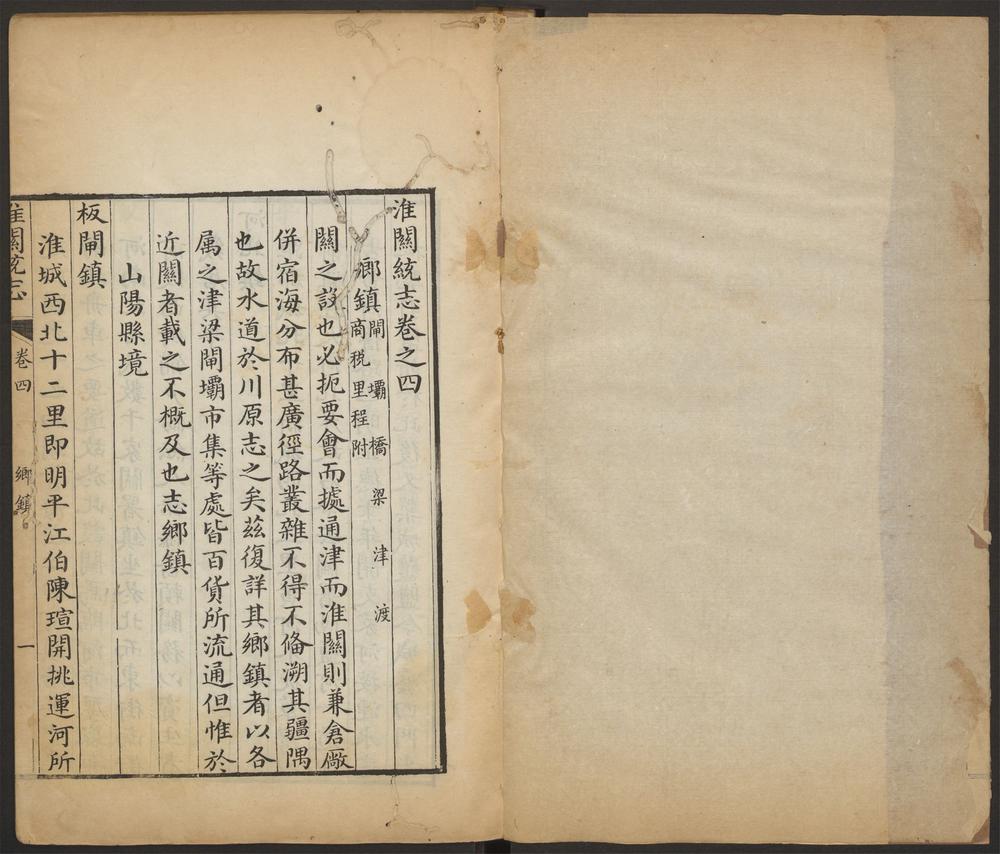 淮關統志卷之四
鄉鎮 閘 壩 橋 梁 津 渡
商税里程附
關之設也必扼要會而據通津而淮關則兼倉廠
併宿海分布甚廣徑路叢雜不得不俻溯其疆隅
也故水道於川原志之矣茲復詳其鄉鎮者以各
属之津梁閘壩市集等處皆百貨所流通但惟於
近關者載之不概及也志鄉鎮
山陽縣境
板閘鎮
淮城西北十二里即明平江伯陳瑄開挑運河所
淮關統志 卷四 鄉鎮 一